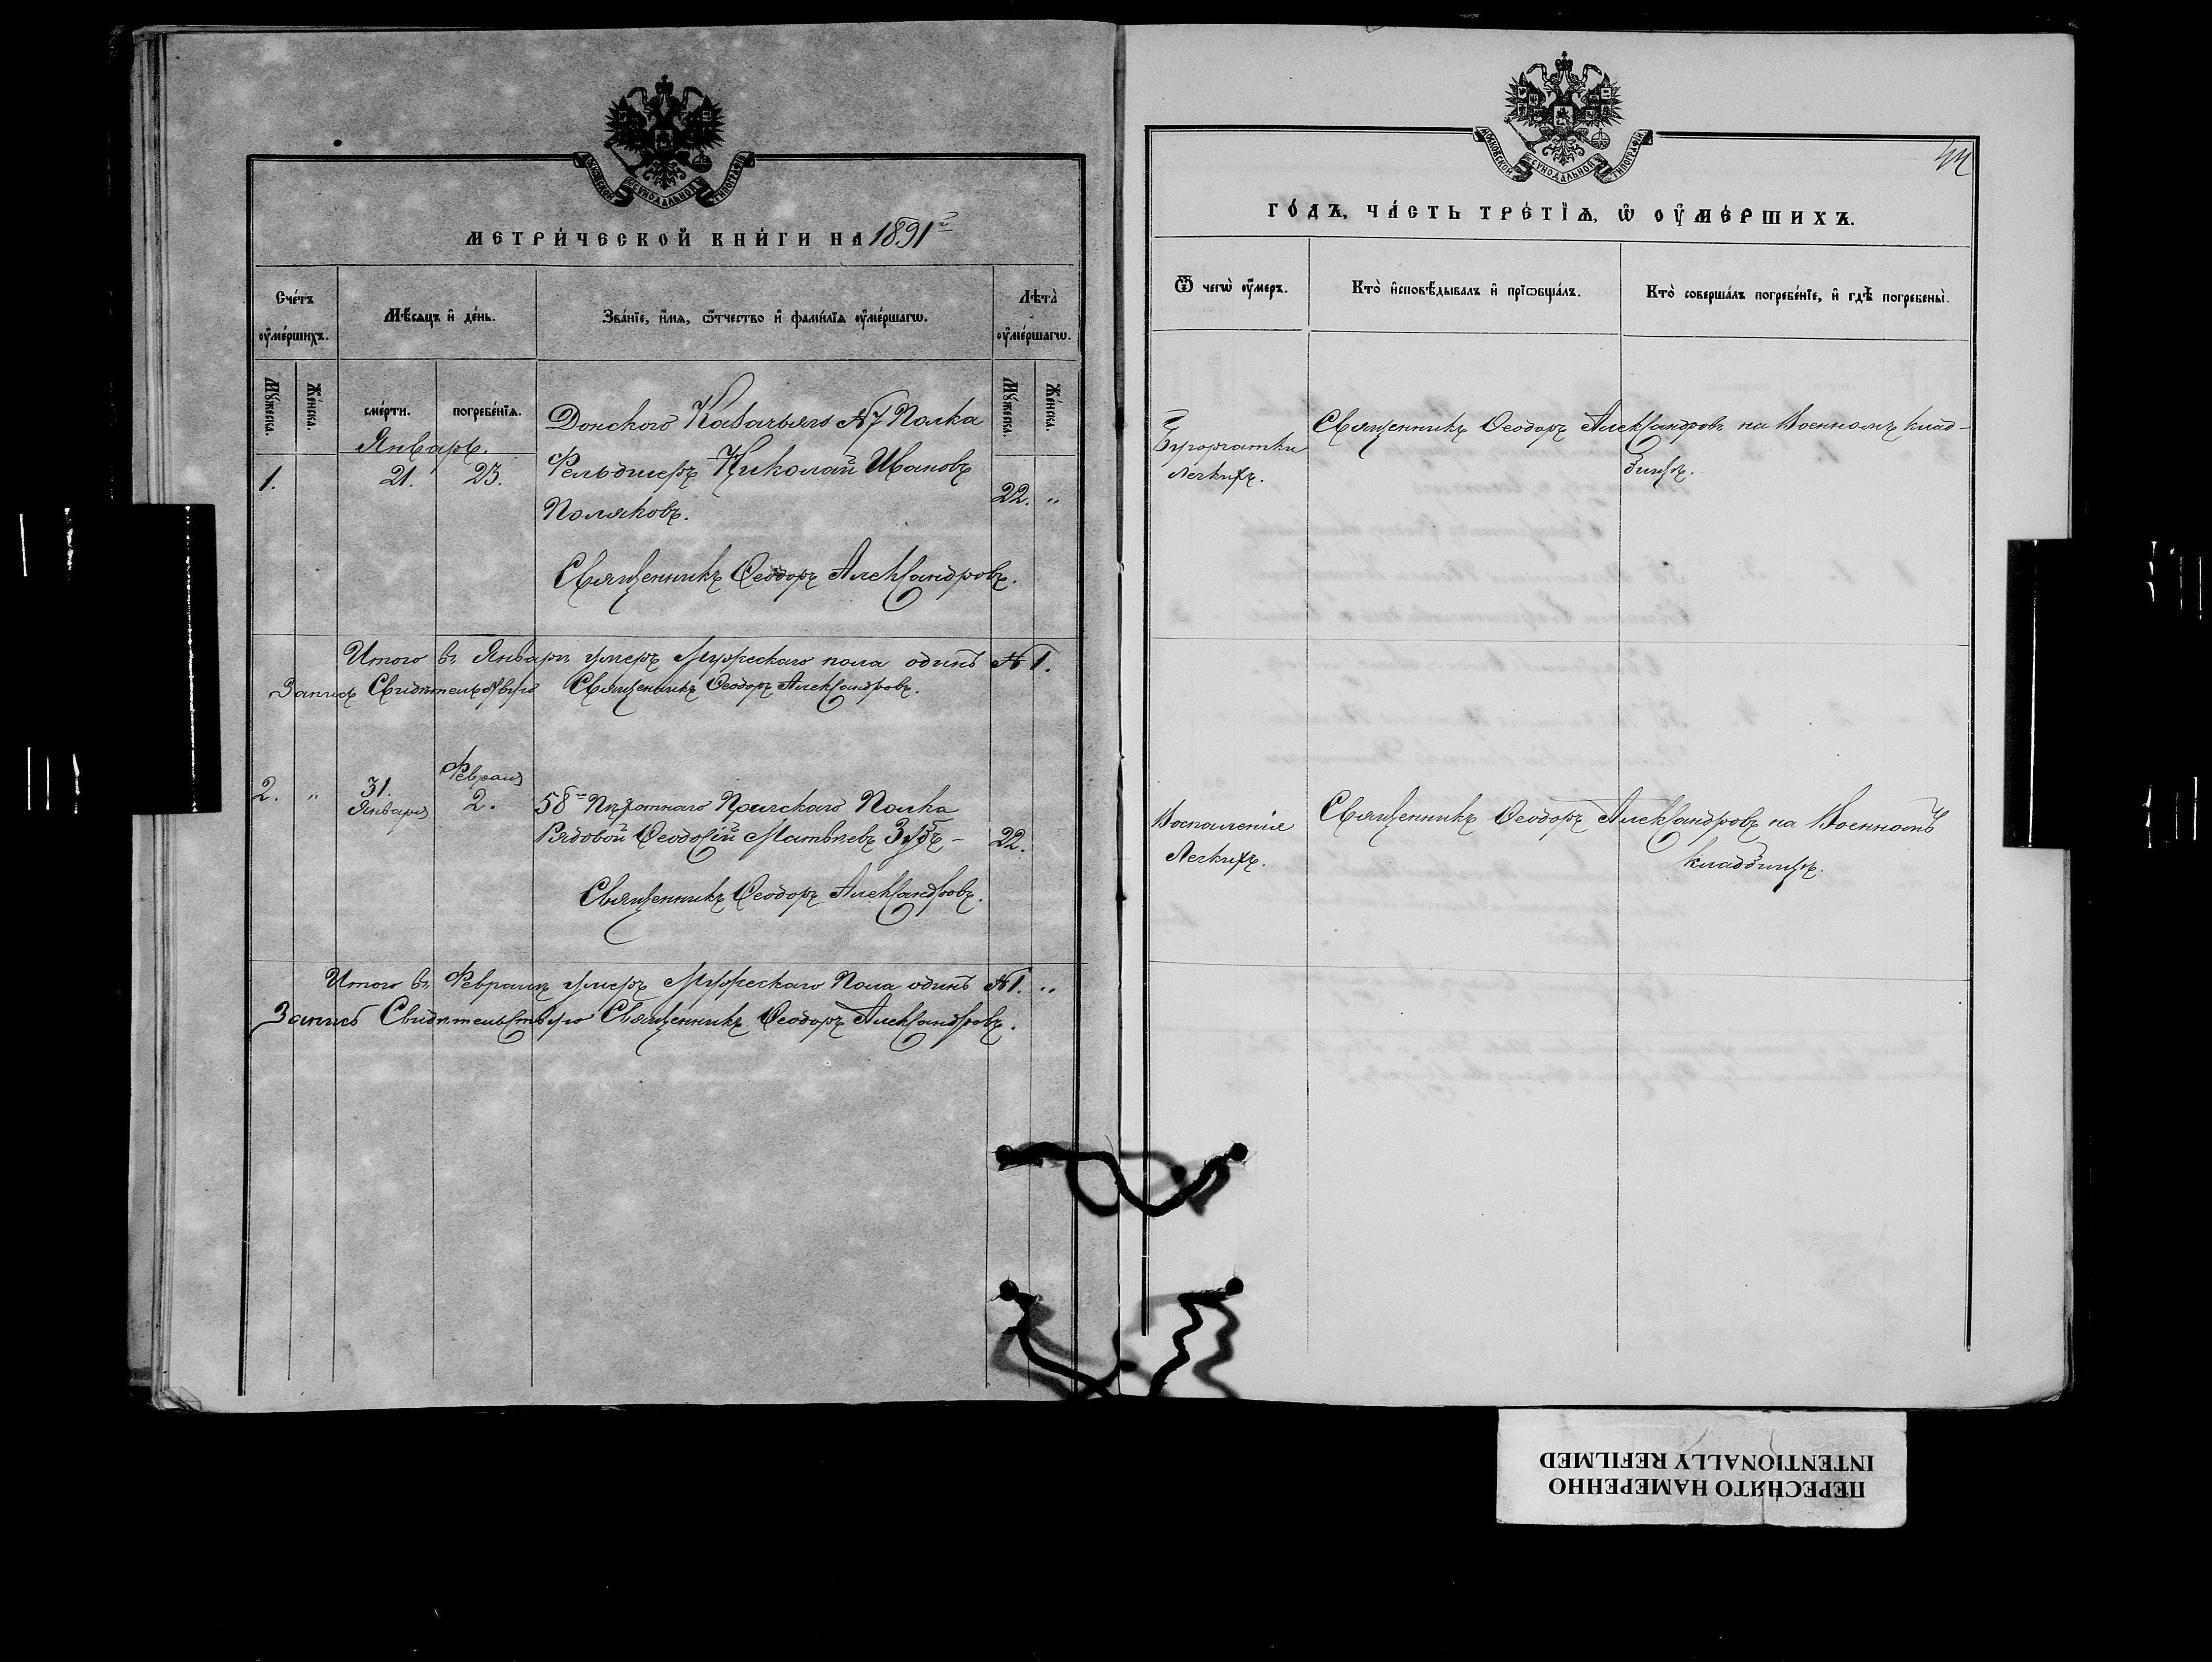 МОСКОВСКОЙ СУНОДАЛЬНОЙ ТИПОГРАФІИ
МЕТРИ́ЧЕСКОЙ КНИ́ГИ НА 1891 г
Сче́тъ оу҆ме́ршихъ.
Мѣ́сяцъ и҆ де́нь.
Зва́нїе, и҆́мя, ѻ҆́тчество и҆ фами́лїя оу҆ме́ршагѡ.
Лѣта̀ оу҆ме́ршагѡ.
Мꙋ́жеска.
Же́нска.
сме́рти.
погребе́нїѧ.
Мꙋ́жеска.
Же́нска.
Январь.
1.
21.
23.
Донского Казачьяго №7 Полка
Фельдшеръ Николай Ивановъ
Поляковъ.
22.
"
Священникъ Ѳеодоръ Александровъ.
Итого въ Январѣ умеръ Мужескаго пола одинъ №1.
Запись Свидѣтельствую Священникъ Ѳеодоръ Александровъ.
2.
"
31.
Января
Февраля
2.
58го Пѣхотнаго Прагскаго Полка
Рядовой Ѳеодосій Матвѣевъ Зубъ -
22.
Священникъ Ѳеодоръ Александровъ.
Итого въ Февралѣ умеръ Мужескаго Пола одинъ №1. "
Запись Свидѣтельствую Священникъ Ѳеодоръ Александровъ.
МОСКОВСКОЙ СУНОДАЛЬНОЙ ТИПОГРАФІИ
ГО́ДЪ, ЧА́СТЬ ТРЕ́ТЇѦ, Ѡ҆ ОУ҆МЕ́РШИХЪ.
Ѿ чегѡ̀ оу҆́меръ.
Кто̀ и҆сповѣ́дывалъ и҆ прїѡбща́лъ.
Кто̀ соверша́лъ погребе́нїе, и҆ гдѣ̀ погребены̀.
Бугорчатки
Легкихъ.
Священникъ Ѳеодоръ Александровъ на Военномъ клад-
бищѣ.
Воспаленія
Легкихъ.
Священникъ Ѳеодоръ Александровъ на Военномъ
кладбищѣ.
ПЕРЕСНЯТО НАМЕРЕННО
INTENTIONALLY REFILMED